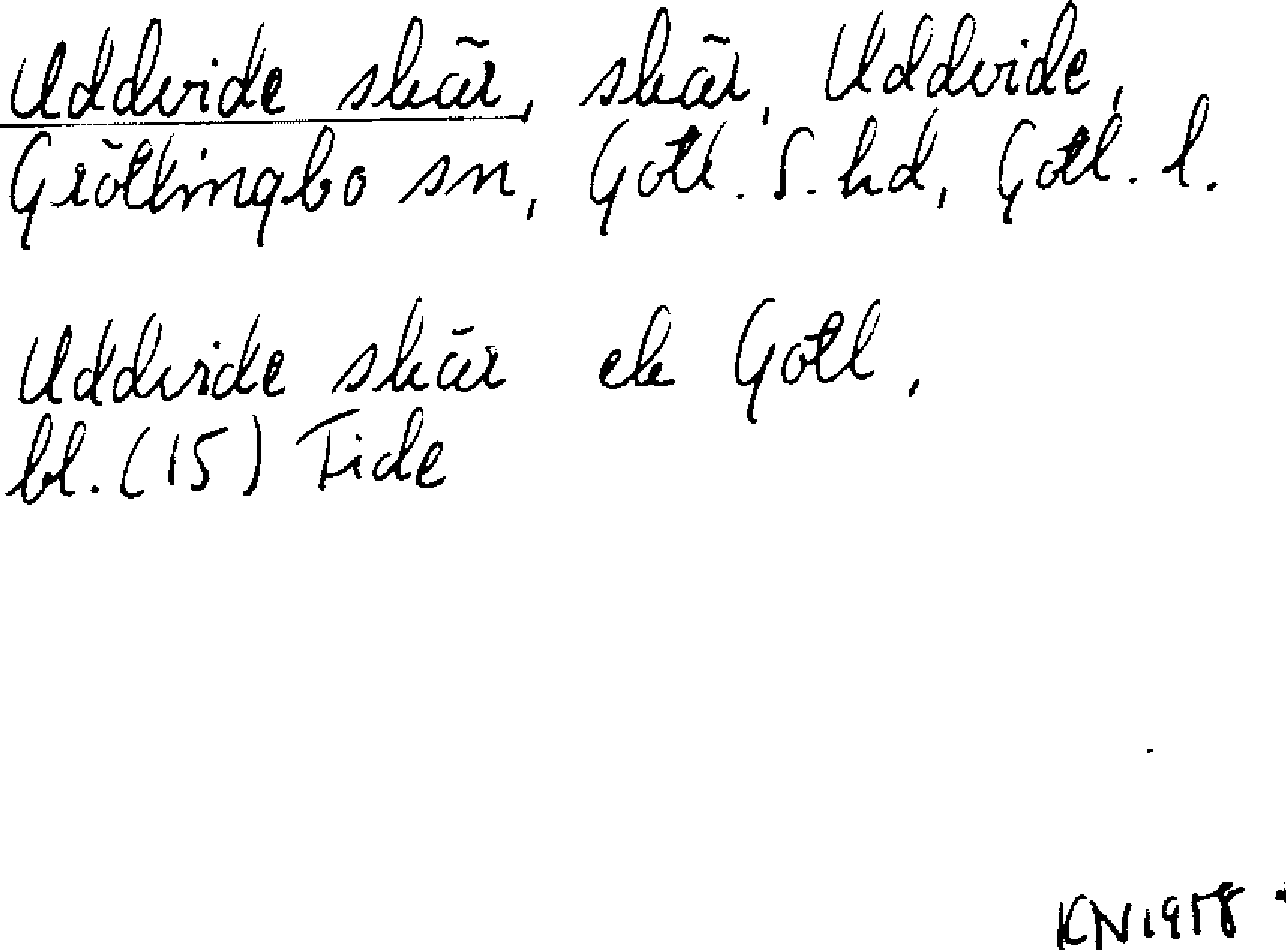 Uddvide skär, skär, Uddvide,
Grötlingbo sn, Gotl. S. hd, Gotl. l.
Uddvide skär ek Gotl,
bl. (15) Fide
KN 1958